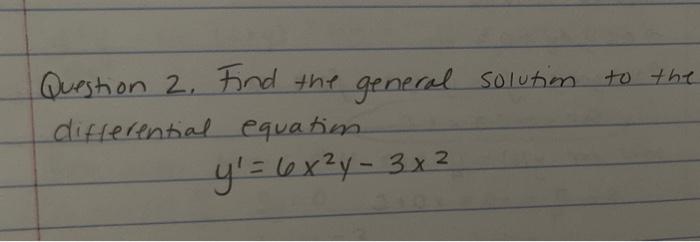 Question 2. Find the general solution to the
differential equation
y' = 6x²y - 3x²